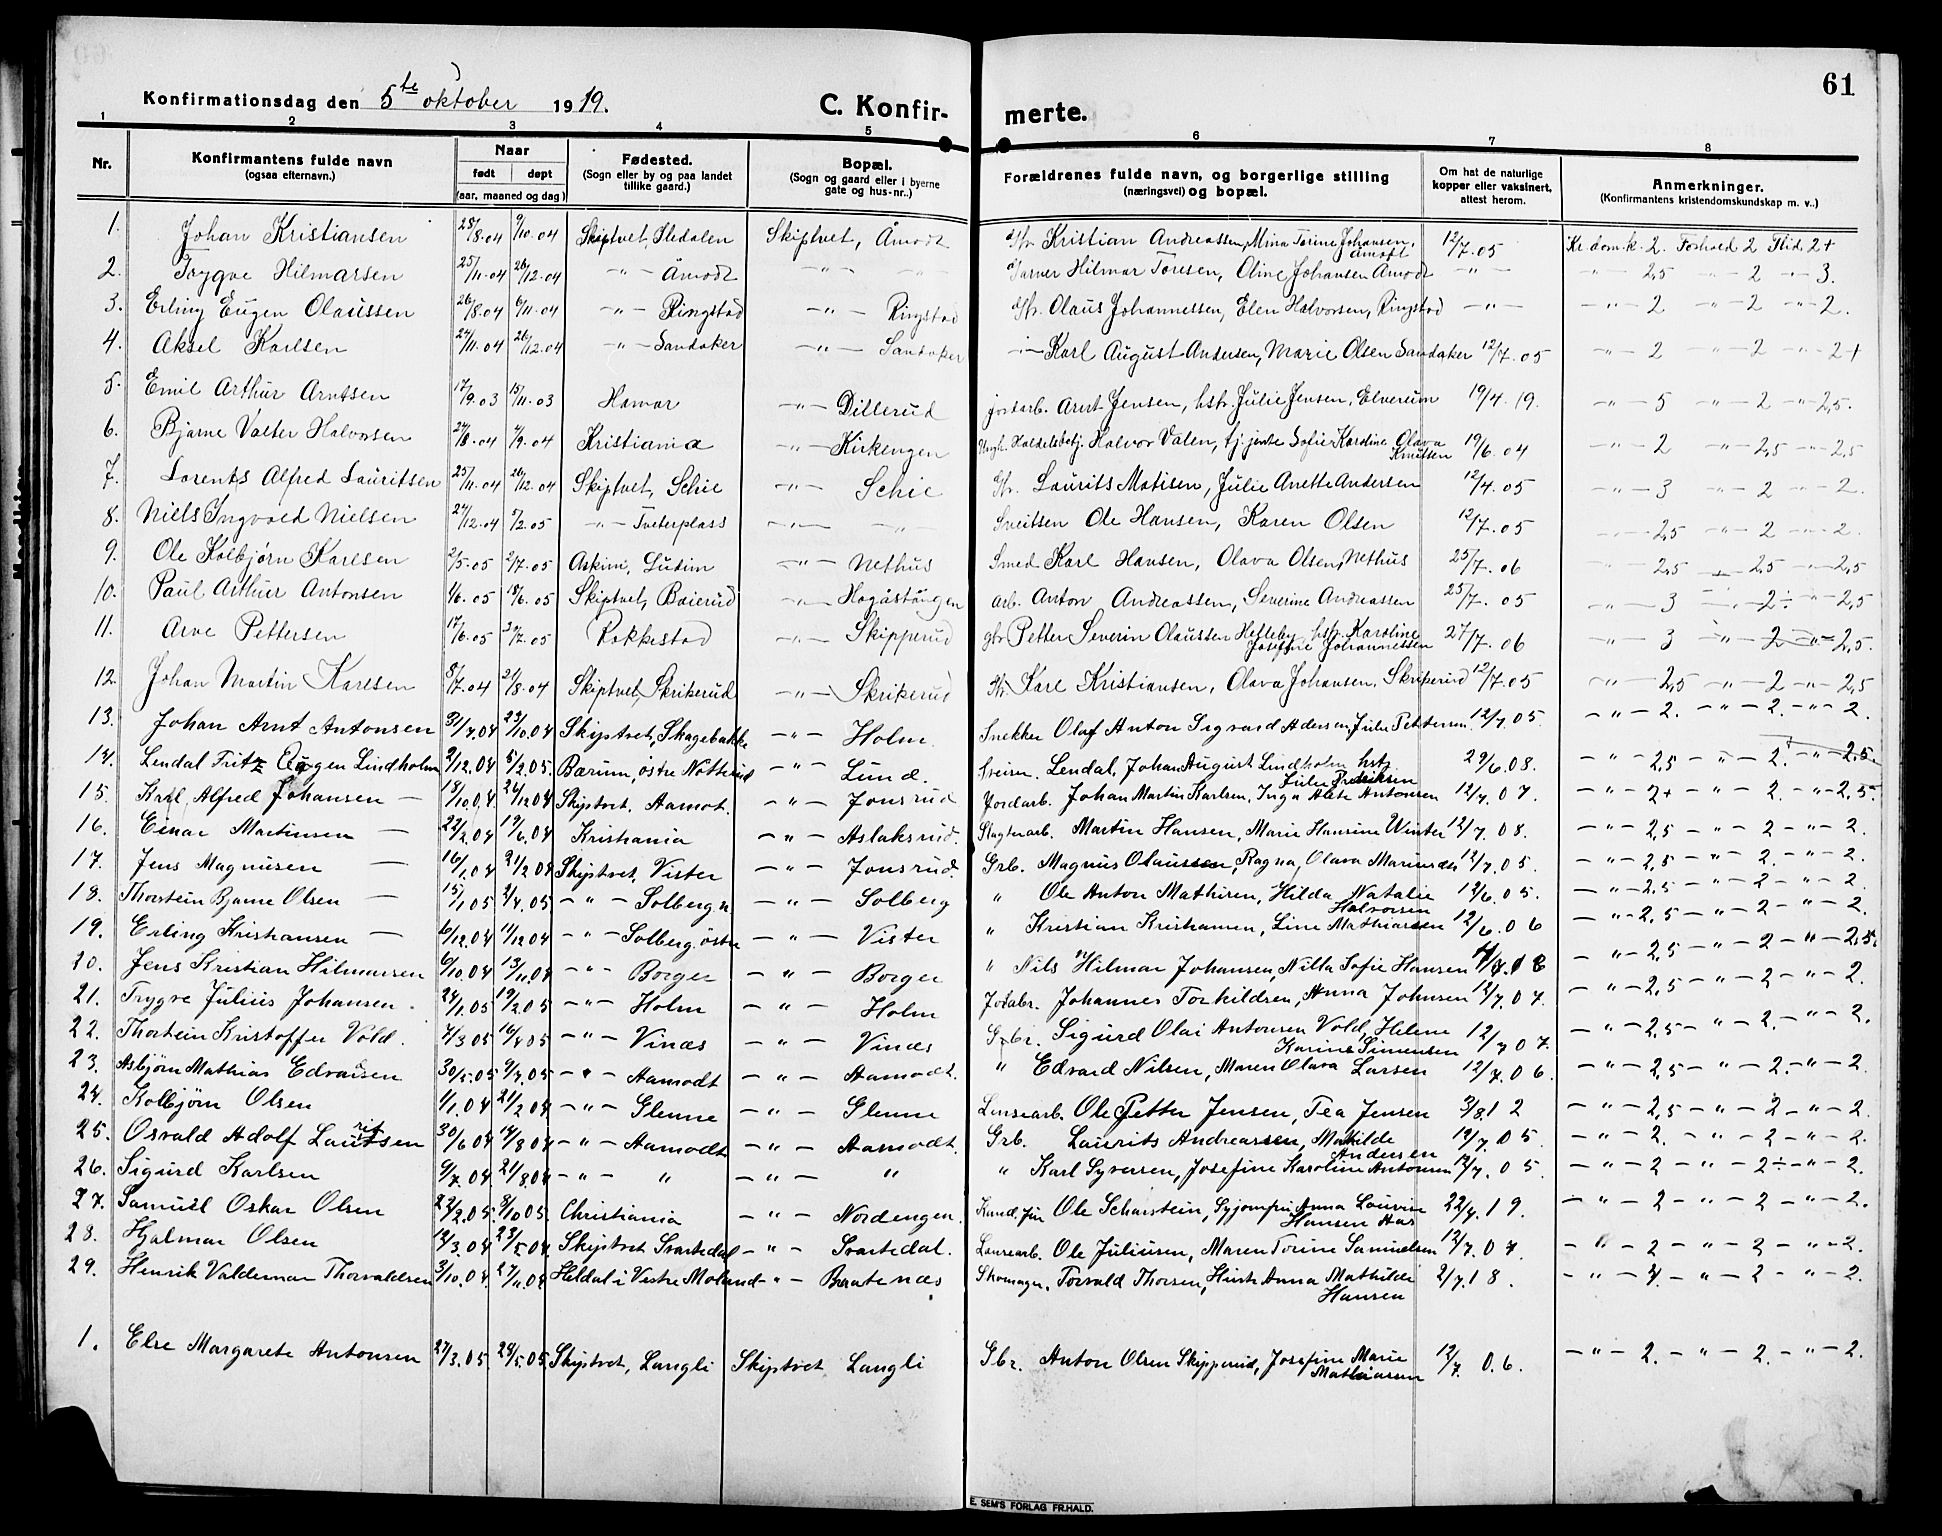 61
Konfirmationsdag den 5te oktober 1919. C. Konfir- merte.
1 2 3 4 5 6 7 8
Nr. Konfirmantens fulde navn (ogsaa efternavn.) Naar født døpt (aar, maaned og dag) Fødested. (Sogn eller by og paa landet tillike gaard.) Bopæl. (Sogn og gaard eller i byerne gate og hus-nr.) Forældrenes fulde navn, og borgerlige stilling (næringsvei) og bopæl. Om hat de naturlige kopper eller vaksinert, attest herom. Anmerkninger. (Konfirmantens kristendomskundskap m. v..)
1. Johan Kristiansen 28/8.04 9/10.04 Skiptvet, Sledalen Skiptvet, Åmodt Kristian Andreassen, Mina Torine Johansen, Åmodt 12/7.05 Kr.domk. 2. Forhold 2 Flid 2+
2. Trygve Hilmarsen 25/11.04 26/12.04 -"- Åmodt -"- Garver Hilmar Toresen, Oline Johansen Åmodt -"- -"- 2,5 -"- 2 -"- 3.
3. Erling Eugen Olaussen 26/8.04 6/11.04 -"- Ringstad -"- Ringstad Olaus Johannessen, Elen Halvorsen, Ringstad -"- -"- 2 -"- 2 -"- 2.
4. Aksel Karlsen 24/11.04 26/12.04 -"- Sandaker -"- Sandaker -"- Karl August Andersen, Marie Olsen Sandaker 12/7.05 -"- 2 -"- 2 -"- 2+
5. Emil Arthur Arntsen 17/9.03 15/11.03 Hamar -"- Dillerud jordarb. Arnt Jensen, hstr. Julie Jensen, Elverum 19/4.19. -"- 5 -"- 2 -"- 2,5.
6. Bjarne Valter Halvorsen 24/8.04 4/9.04 Kristiania -"- Kirkengen Halvor Valen, tj.jente Sofie Kardine Olava Knutsen 19/6.04 -"- 2 -"- 2,5 -"- 2,5
7. Lorents Alfred Lauritsen 25/11.04 26/12.04 Skiptvet, Schie -"- Schie Laurits Matisen, Julie Anette Andersen 12/4.05 -"- 3 -"- 2 -"- 2.
8. Niels Ingvold Nielsen 27/12.04 5/2.05 -"- Tveterplass -"- -"- Sveitsen Ole Hansen, Karen Olsen 12/7.05 -"- 2,5 -"- 2 -"- 2.
9. Ole Kolbjørn Karlsen 2/5.05 2/7.05 Askim, Ludim -"- Nethus Smed Karl Hansen, Olava Olsen, Nethus 25/7.06 -"- 2,5 -"- 2,5 -"- 2,5
10. Paul Arthur Antonsen 1/6.05 18/6.05 Skiptvet, Baierud -"- Hagåstangen arb. Anton Andreassen, Severine Andreassen 25/7.05 -"- 3 -"- 2÷ -"- 2,5
11. Arve Pettersen 17/6.05 30/7.05 Rakkestad -"- Skipperud gbr Petter Severin Olaussen Hefleby, hstr. Karoline Josefine Johannessen 27/7.06 -"- 3 -"- 2 -"- 2,5.
12. Johan Martin Karlsen 8/7.04 21/8.04 Skiptvet, Skrikerud -"- Skrikerud Karl Kristiansen, Olava Johansen, Skrikerud 12/7.05 -"- 2,5 -"- 2 -"- 2,5
13. Johan Arnt Antonsen 31/7.04 23/10.04 Skiptvet, Skagebakke -"- Holm. Snekker Olaf Anton Sigvard Adersen, Julie Pettersen 12/7.05. -"- 2. -"- 2. -"- 2.
14. Lendal Fritz Eugen Lindholm 2/12.04 5/2.05. Bærum, østre -"- Lund. Sveiser. Lendal, Johan August Lindholm hstr. Julie Fredriksen 29/6.08. -"- 2,5 -"- 2. -"- 2,5.
15. Karl Alfred Johansen 18/10.04. 26/12.04 Skiptvet. Aamot. -"- Jonsrud Jordarb. Johan Martin Karlsen, Inga Alete Antonsen 12/7.07. -"- 2+ -"- 2. -"- 2,5.
16. Einar Martinsen 22/2.04 19/6.04 Kristiania -"- Aslaksrud. Slagterarb. Martin Hansen, Marie Hansine Winter 12/7.08. -"- 2,5 -"- 2 -"- 2.
17. Jens Magnusen 16/1.04 21/2.04 Skiptvet. Vister -"- Jonsrud. Grb. Magnus Olaussen, Ragna, Olava Marinusen 12/7.05. -"- 2,5 -"- 2. -"- 2.
18. Thorstein Bjarne Olsen 15/1.05 2/4.05. -"- Solberg n. -"- Solberg " Ole Anton Mathisen, Hilda Natalie Halvorsen 12/6.05. -"- 2,5 -"- 2 -"- 2.
19. Erling Kristiansen 6/12.04 11/12.04 -"- Solberg, østre -"- Vister " Kristian Kristiansen, Line Mathiassen 12/6.06 -"- 2,5 -"- 2 -"- 2.
20. Jens Kristian Hilmansen 6/10.04 13/11.04 -"- Borger -"- Borger " Nils Hilmar Johansen, Nilla Sofie Hansen -"- 2,5 -"- 2 -"- 2,5.
21. Trygve Julius Johansen. 24/1.05 19/2.05 -"- Holm -"- Holm Jordabr. Johannes Torkildsen, Anna Johnsen 12/7.07. -"- 2,5 -"- 2 -"- 2.
22. Thorstein Kristoffer Vold. 7/3.05 16/4.05 -"- Vinæs -"- Vinæs Grbr. Sigurd Olai Antonsen Vold, Helene Karine Simensen 12/7.07. -"- 2,5 -"- 2. -"- 2.
23. Asbjørn Mathias Edvardsen 30/5.05 9/7.05. -"- Aamodt -"- Aamodt. " Edvard Nilsen, Maren Olava Larsen 12/7.06. -"- 2,5 -"- 2. -"- 2.
24. Kolbjørn Olsen 1/1.04 21/2.04 -"- Glenne -"- Glenne Lensearb. Ole Petter Jensen, Tea Jensen 3/8.12 -"- 2,5 -"- 2 -"- 2.
25. Osvald Adolf Lauritsen 30/6.04 14/8.04 -"- Aamodt -"- Aamodt. Grb. Laurits Andreassen, Matilde Andersen 12/7.05. -"- 2. -"- 2 -"- 2.
26. Sigurd Karlsen 9/7.04 21/8.04 -"- " -"- " " Karl Syversen, Josefine Karoline Antonsen 12/7.05. -"- 2 -"- 2÷ -"- 2.
27. Samuel Oskar Olsen 22/2.05. 8/10.05. Christiania -"- Nordengen. Ole Scharstein, Syjomfru Anna Lovise Hansen Aas 22/7.19. -"- 2 -"- 2 -"- 2.
28. Hjalmar Olsen 12/3.04 23/5.04. Skiptvet Svartedal -"- Svartedal. Lensearb. Ole Juliusen, Maren Torine Samuelsen 12/7.07. -"- 2 -"- 2 -"- 2.
29. Henrik Valdemar Thorvaldsen 3/10.04 27/11.04 Heldal i Vestre Moland -"- Braatenæs Skomager. Torvald Thorsen, Hustr. Anna Mathilde Hansen 2/7.18. -"- 4. -"- 2 -"- 2.
1. Else Margarete Antonsen 27/3.05 28/5.05 Skiptvet, Langli Skiptvet Langli Gbr. Anton Olsen Skipperud, Josefine Marie Mathiassen 12/7.06. -"- 2. -"- 2. -"- 2.
E. SEM'S FORLAG FR.HALD.